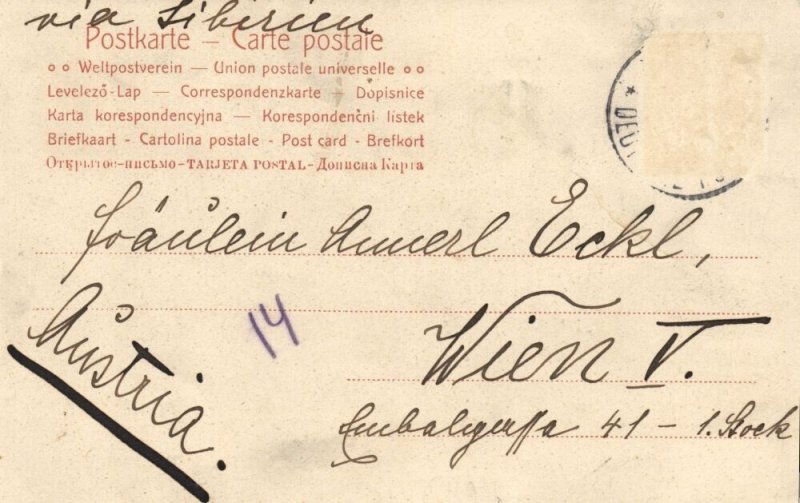 via Sibirien
Postkarte — Carte postale
Weltpostverein — Union postale universelle
Levelező-Lap — Correspondenzkarte — Dopisnice
Karta korespondencyjna — Korespondenčni listek
Briefkaart - Cartolina postale - Post card - Brefkort
Открытое-письмо-TARJETA POSTAL-Дописна Карта
Fräulein Annerl Eckl,
14
Wien V.
Austria.
41 - 1. Stock